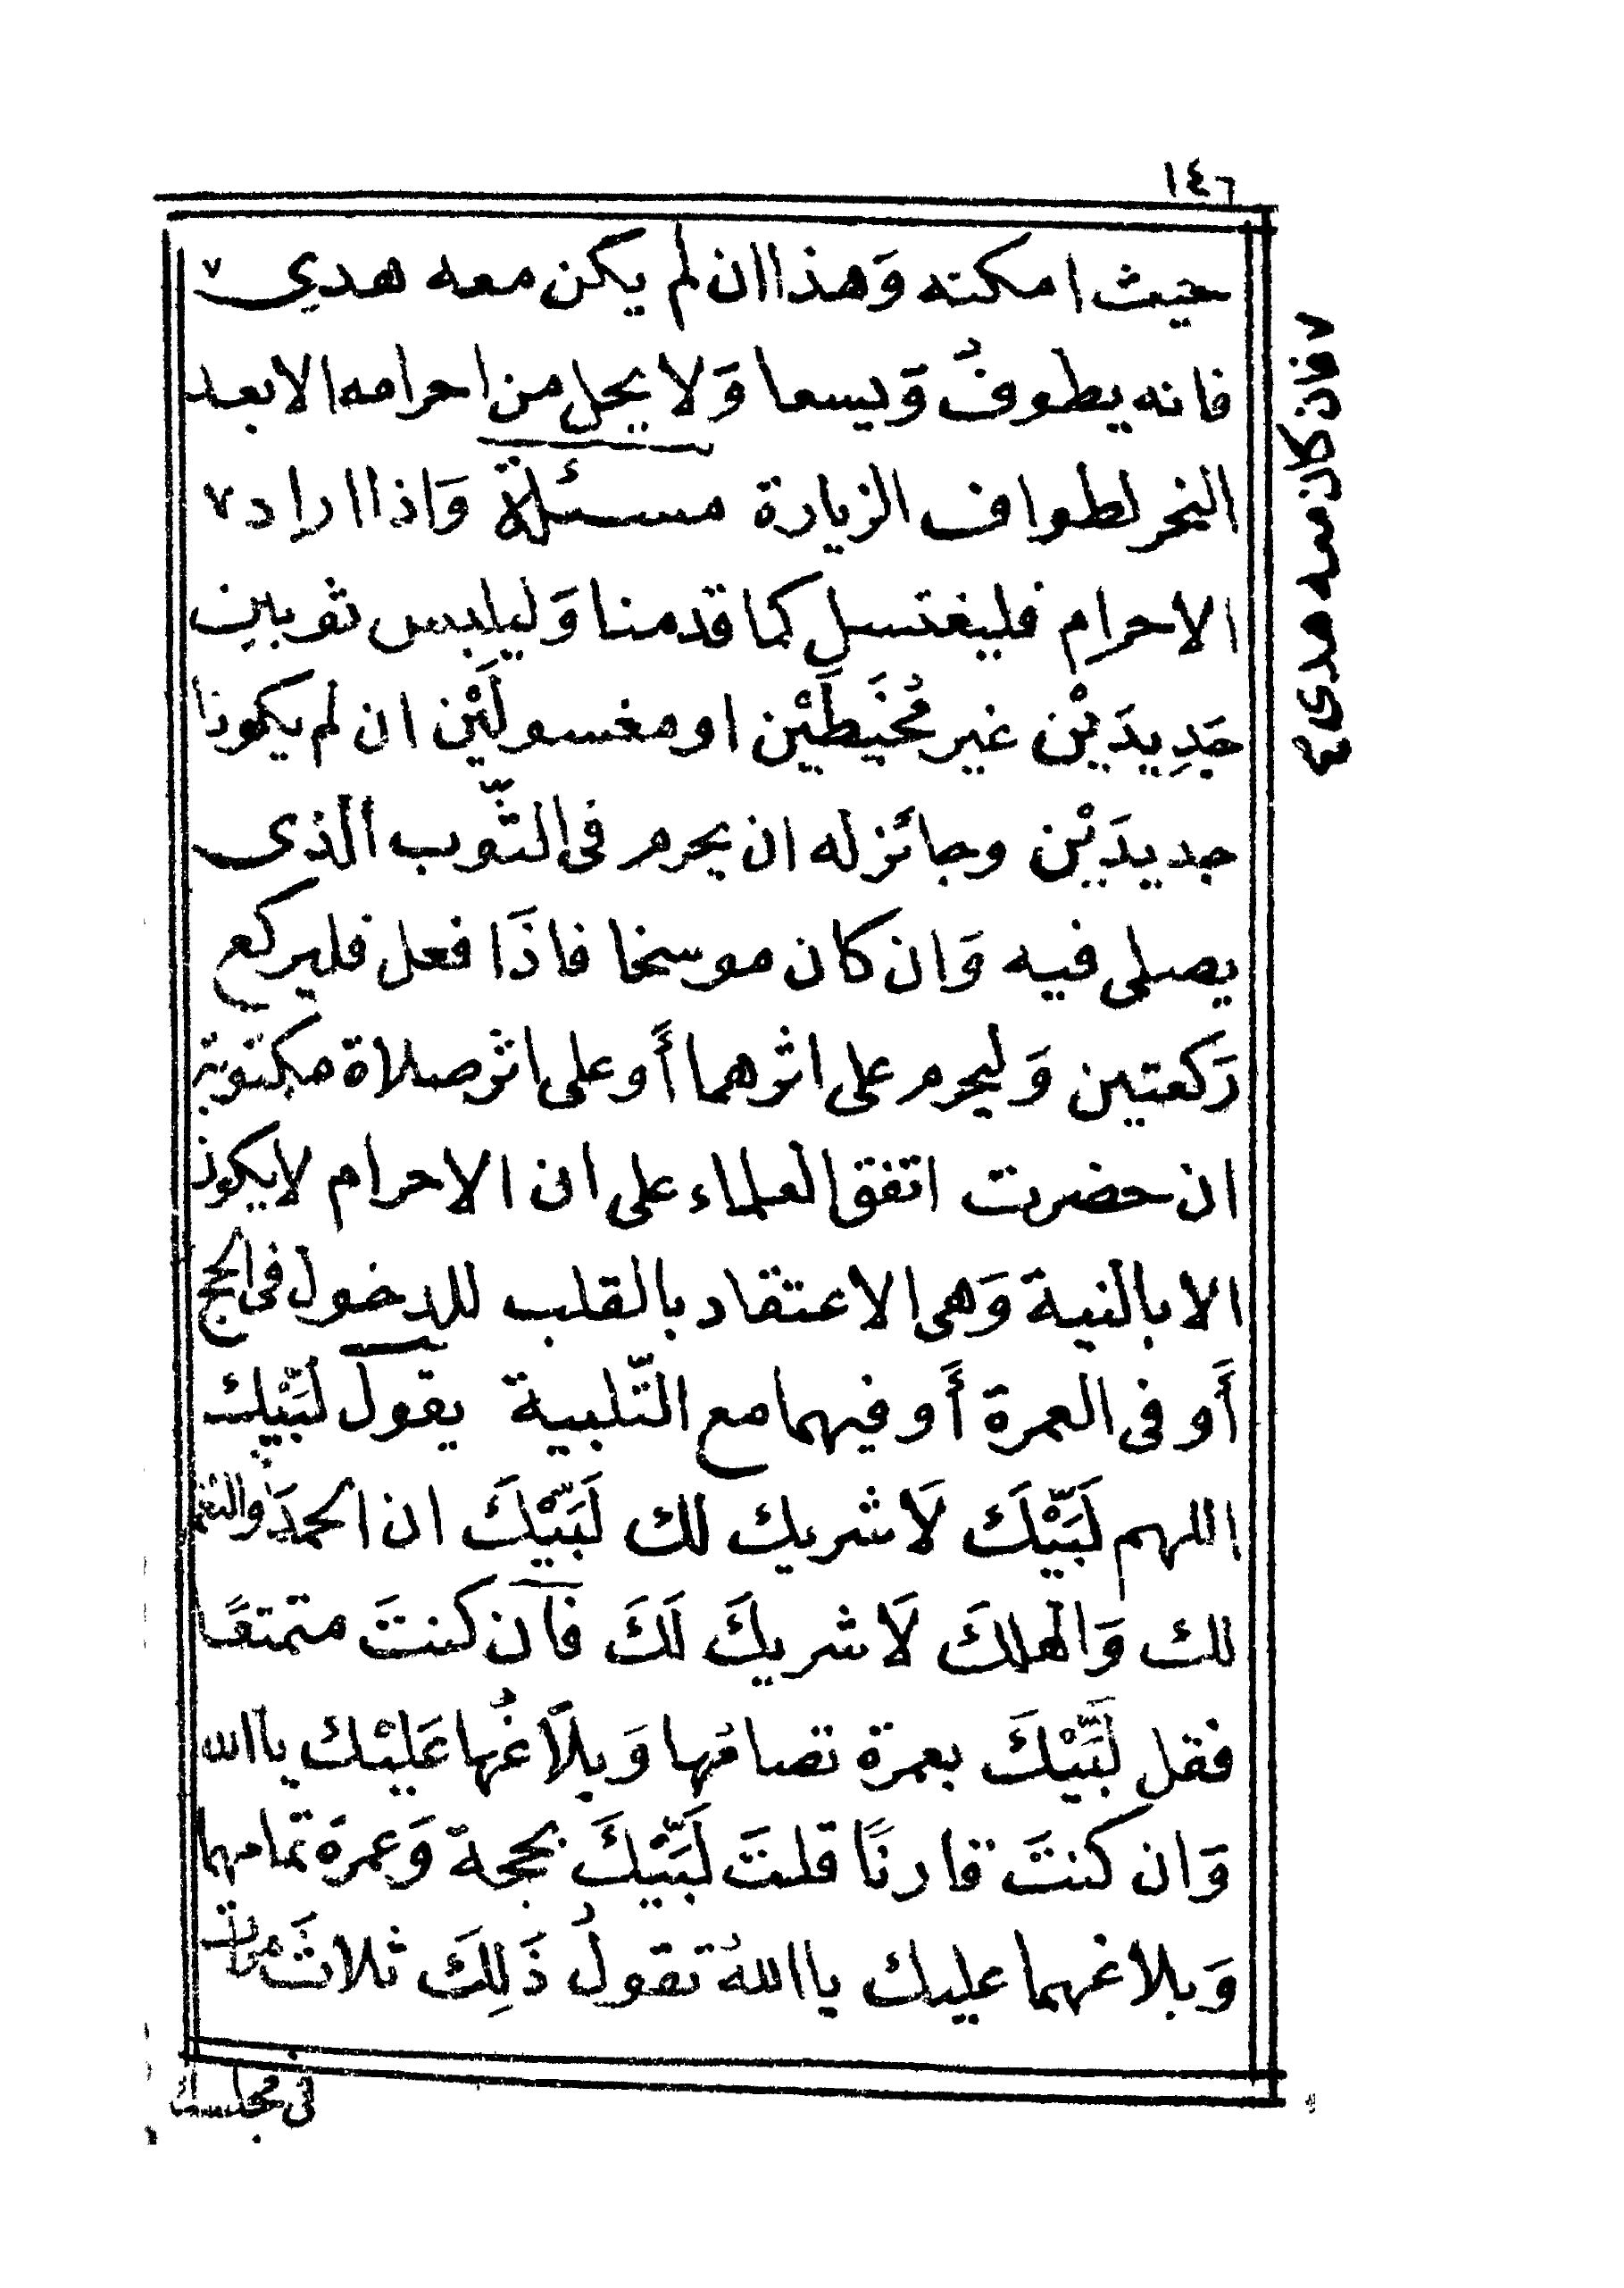 ١٤٦
حيث امكنه وَهذا ان لم يكن معه هدي ٧
٧ فان كان معه هدى
فانه يطوفُ وَيسعا وَلا يحل من احرامه الا بعد
النحر لطواف الزيارة مسئلة وَاذا اراد ٧
الاحرام فليغتسل كما قدمنا وَليلبس ثوبين
جَدِيدَيْن غير مُخَيَطَيْن او مغسولَيْن ان لم يكونا
جديدَيْن وجائز له ان يحرم فى الثّوب الذى
يصلى فيه وَان كان موسخا فاذَا فعل فليركع
رَكعتين وَليحرم على اثرهما أَو على اثر صلاة مكتوبة
ان حضرت اتفق العلماء على ان الاحرام لا يكون
الا بالنية وَهى الاعتقاد بالقلب للدخول فى الحج
أَو فى العمرة أَو فيهما مع التّلبية يقول لبَيْك
اللهم لَبَّيْكَ لَا شريك لك لَبَّيْكَ ان الحمدَ والنعمة
لك وَالملكَ لَا شريكَ لَكَ فان كنتَ متمتعًا
فقل لَبَّيْكَ بعمرة تمامُها وَبلَاغُها عَليْك يا الله
وَان كنتَ قارنًا قلتَ لَبَّيْكَ بحجة وَعمرة تمامهما
وَبلاغهما عليك يا اللهُ تقولُ ذَلِكَ ثلاثَ مرات
فى مجلسك